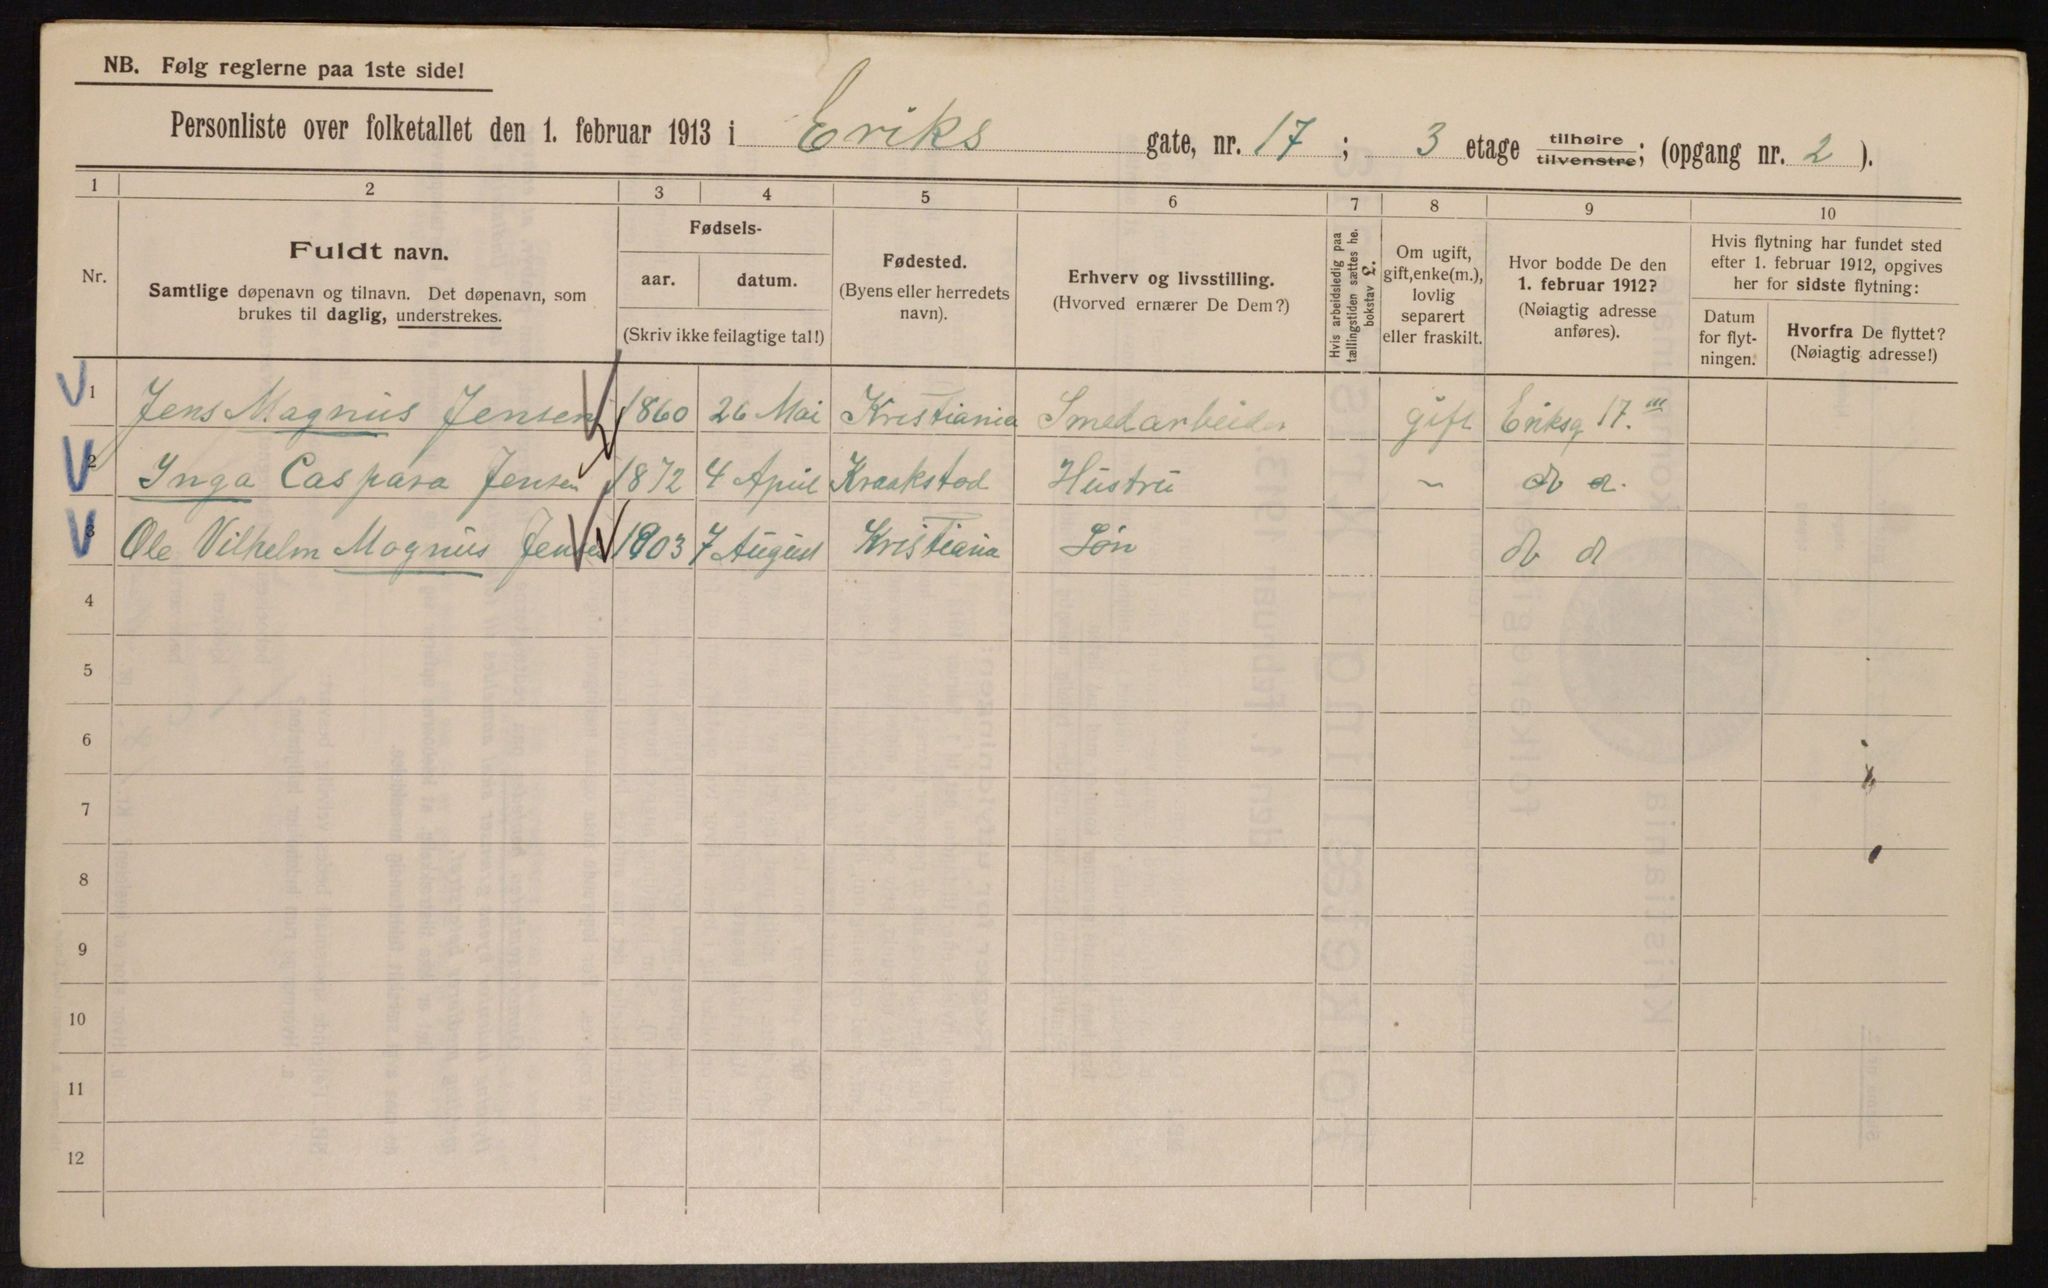 NB. Følg reglerne paa 1ste side!
Personliste over folketallet den 1. februar 1913 i Eriks gate, nr. 17 ; 3 etage tilhøire tilvenstre; (opgang nr. 2 ).
1 2 3 4 5 6 7 8 9 10
Nr.
Fuldt navn.
Samtlige døpenavn og tilnavn. Det døpenavn, som
brukes til daglig, understrekes.
Fødsels-
aar. datum.
(Skriv ikke feilagtige tal!)
Fødested.
(Byens eller herredets
navn).
Erhverv og livsstilling.
(Hvorved ernærer De Dem?)
Hvis arbeidsledig paa
tællingstiden sættes he.
bokstav L.
Om ugift,
gift, enke(m.),
lovlig
separert
eller fraskilt.
Hvor bodde De den
1. februar 1912?
(Nøiagtig adresse
anføres).
Hvis flytning har fundet sted
efter 1. februar 1912, opgives
her for sidste flytning:
Datum
for flyt-
ningen.
Hvorfra De flyttet?
(Nøiagtig adresse!)
1 Jens Magnus Jensen 1860 26 Mai Kristiania Smedarbeider gift Eriksg 17. III
2 Ynga Caspara Jensen 1872 4 April Kraakstad Hustru ~ do do.
3 Ole Vilhelm Magnus Jensen 1903 7 August Kristiania Søn do do
4
5
6
7
8
9
10
11
12